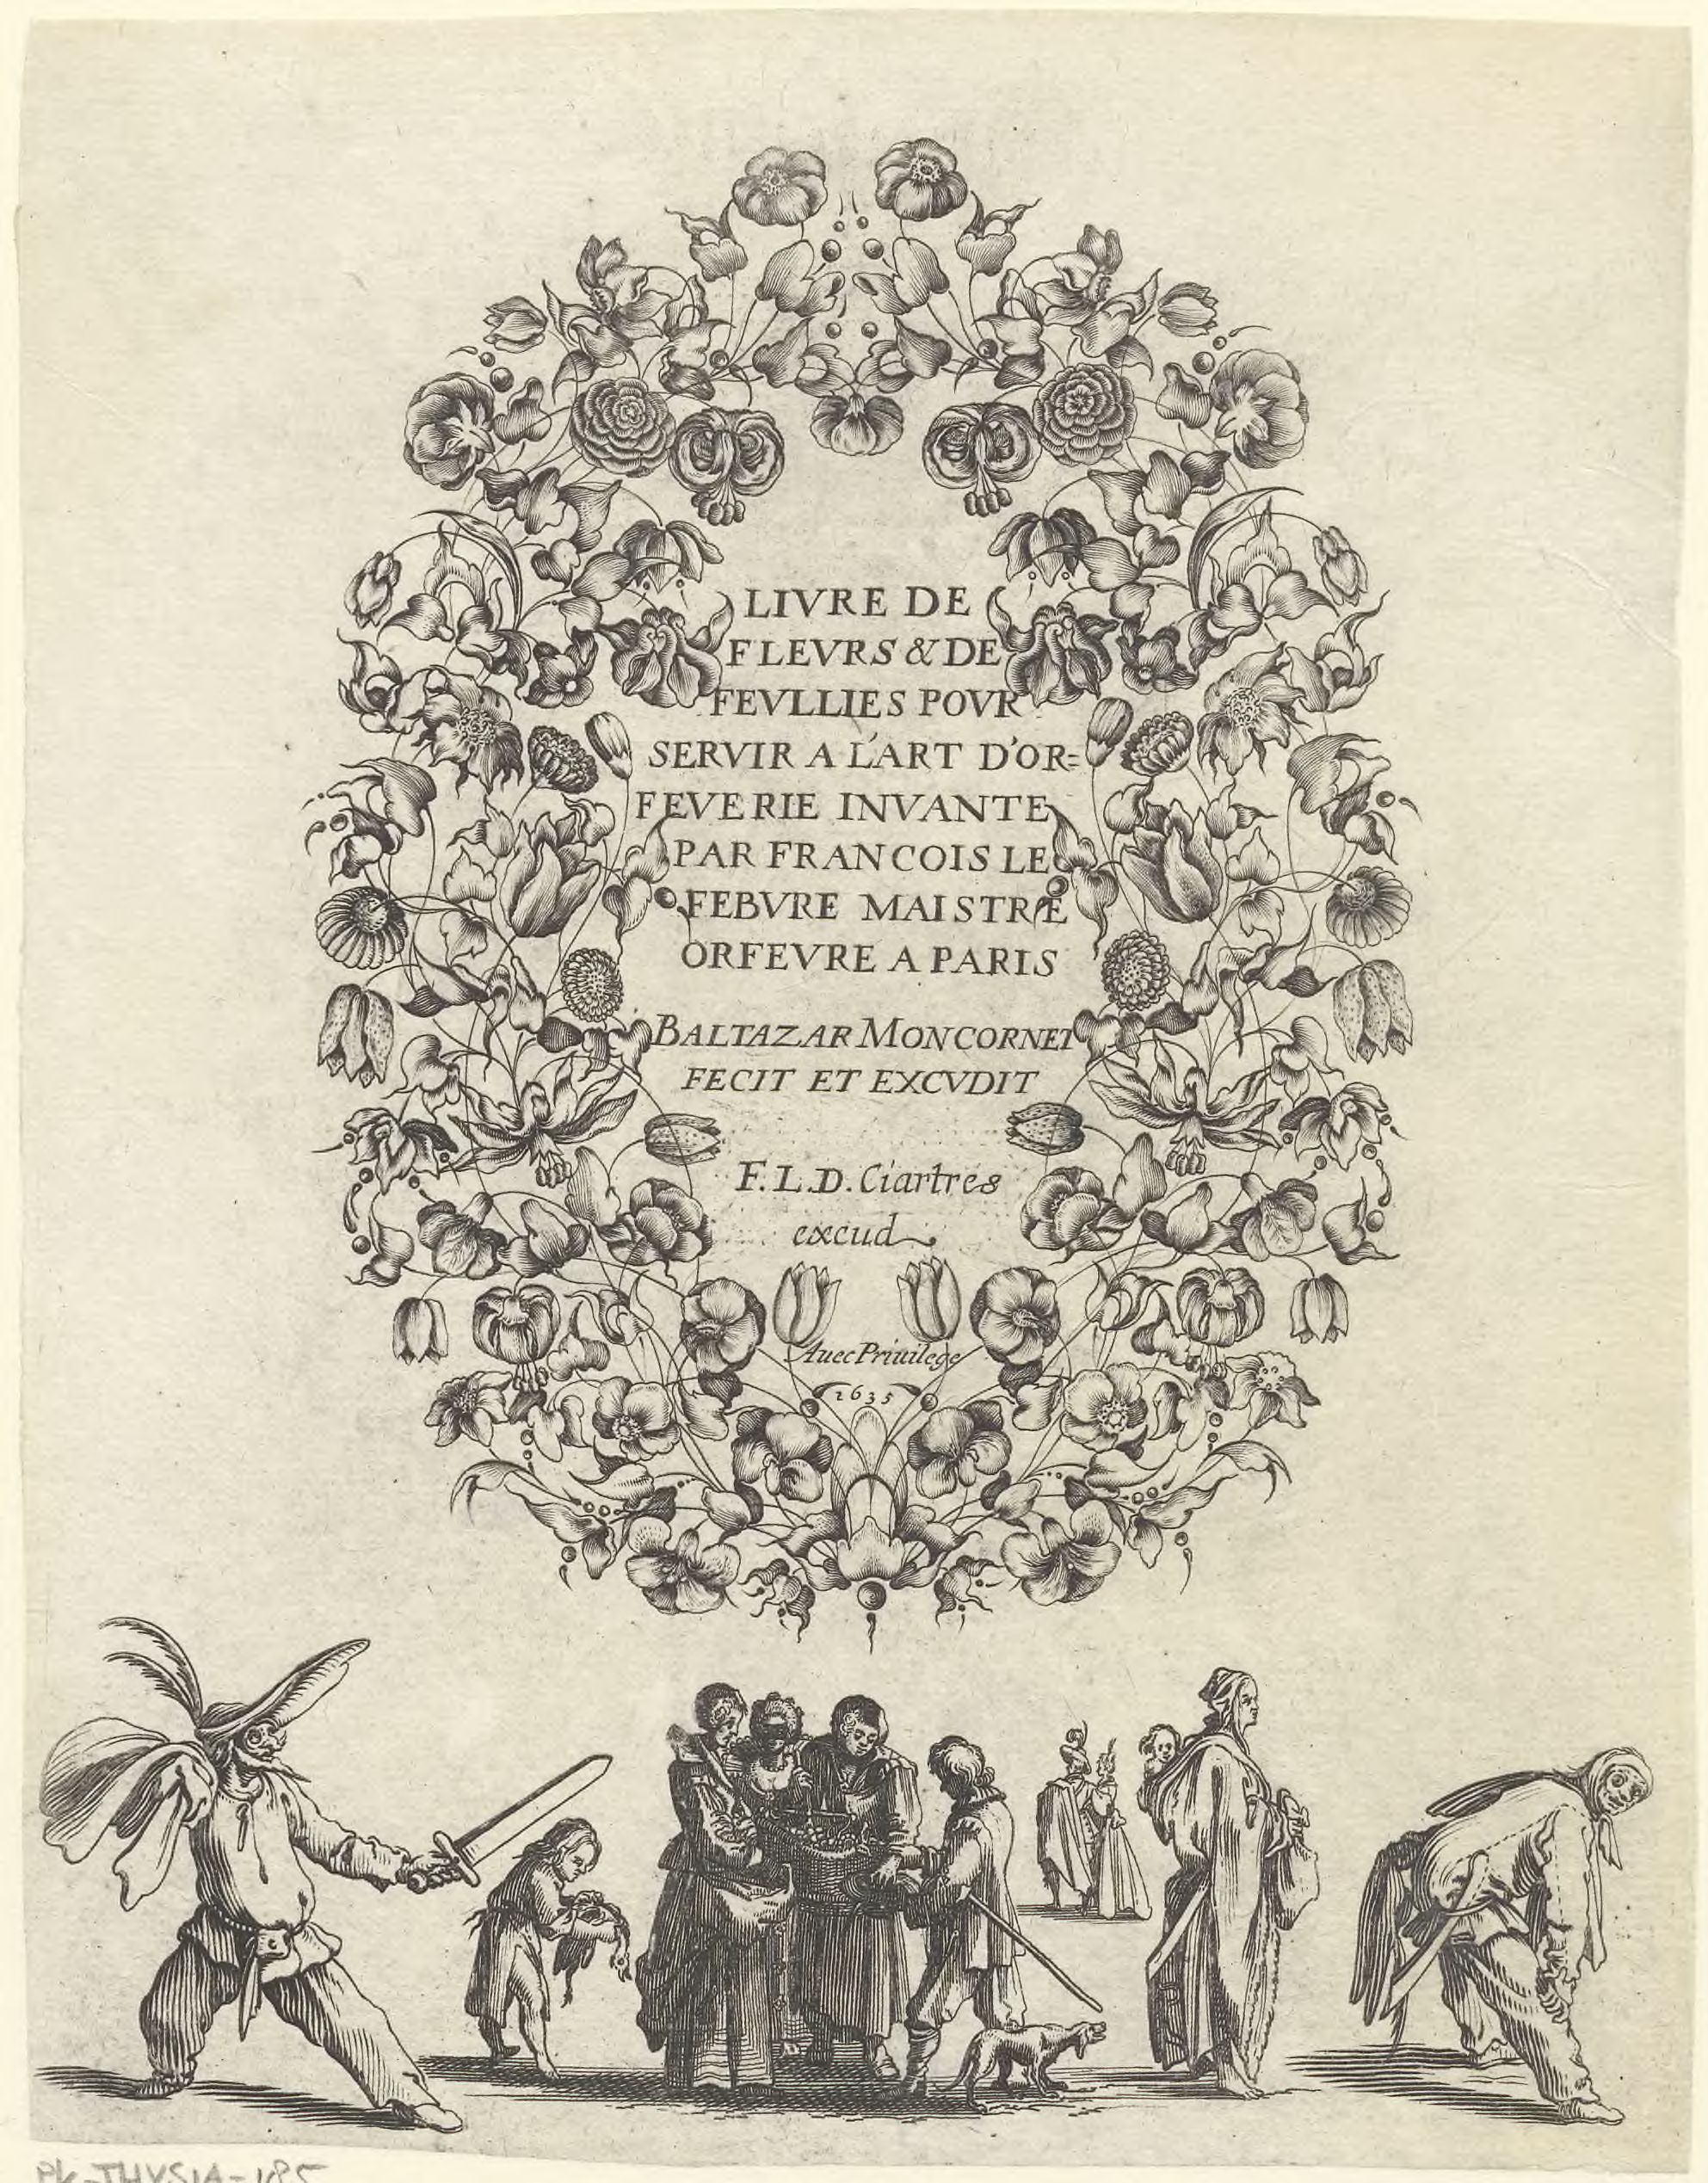 LIVRE DE
FLEVRS & DE
FEVLLIES POVR
SERVIR A L'ART D'OR=
FEVERIE INVANTE
PAR FRANCOIS LE
FEBVRE MAISTRE
ORFEVRE A PARIS
BALTAZAR MONCORNET
FECIT ET EXCVDIT
F. L. D. Ciartres
excud
Avec Privilege
1635
PK-THYSIA-185